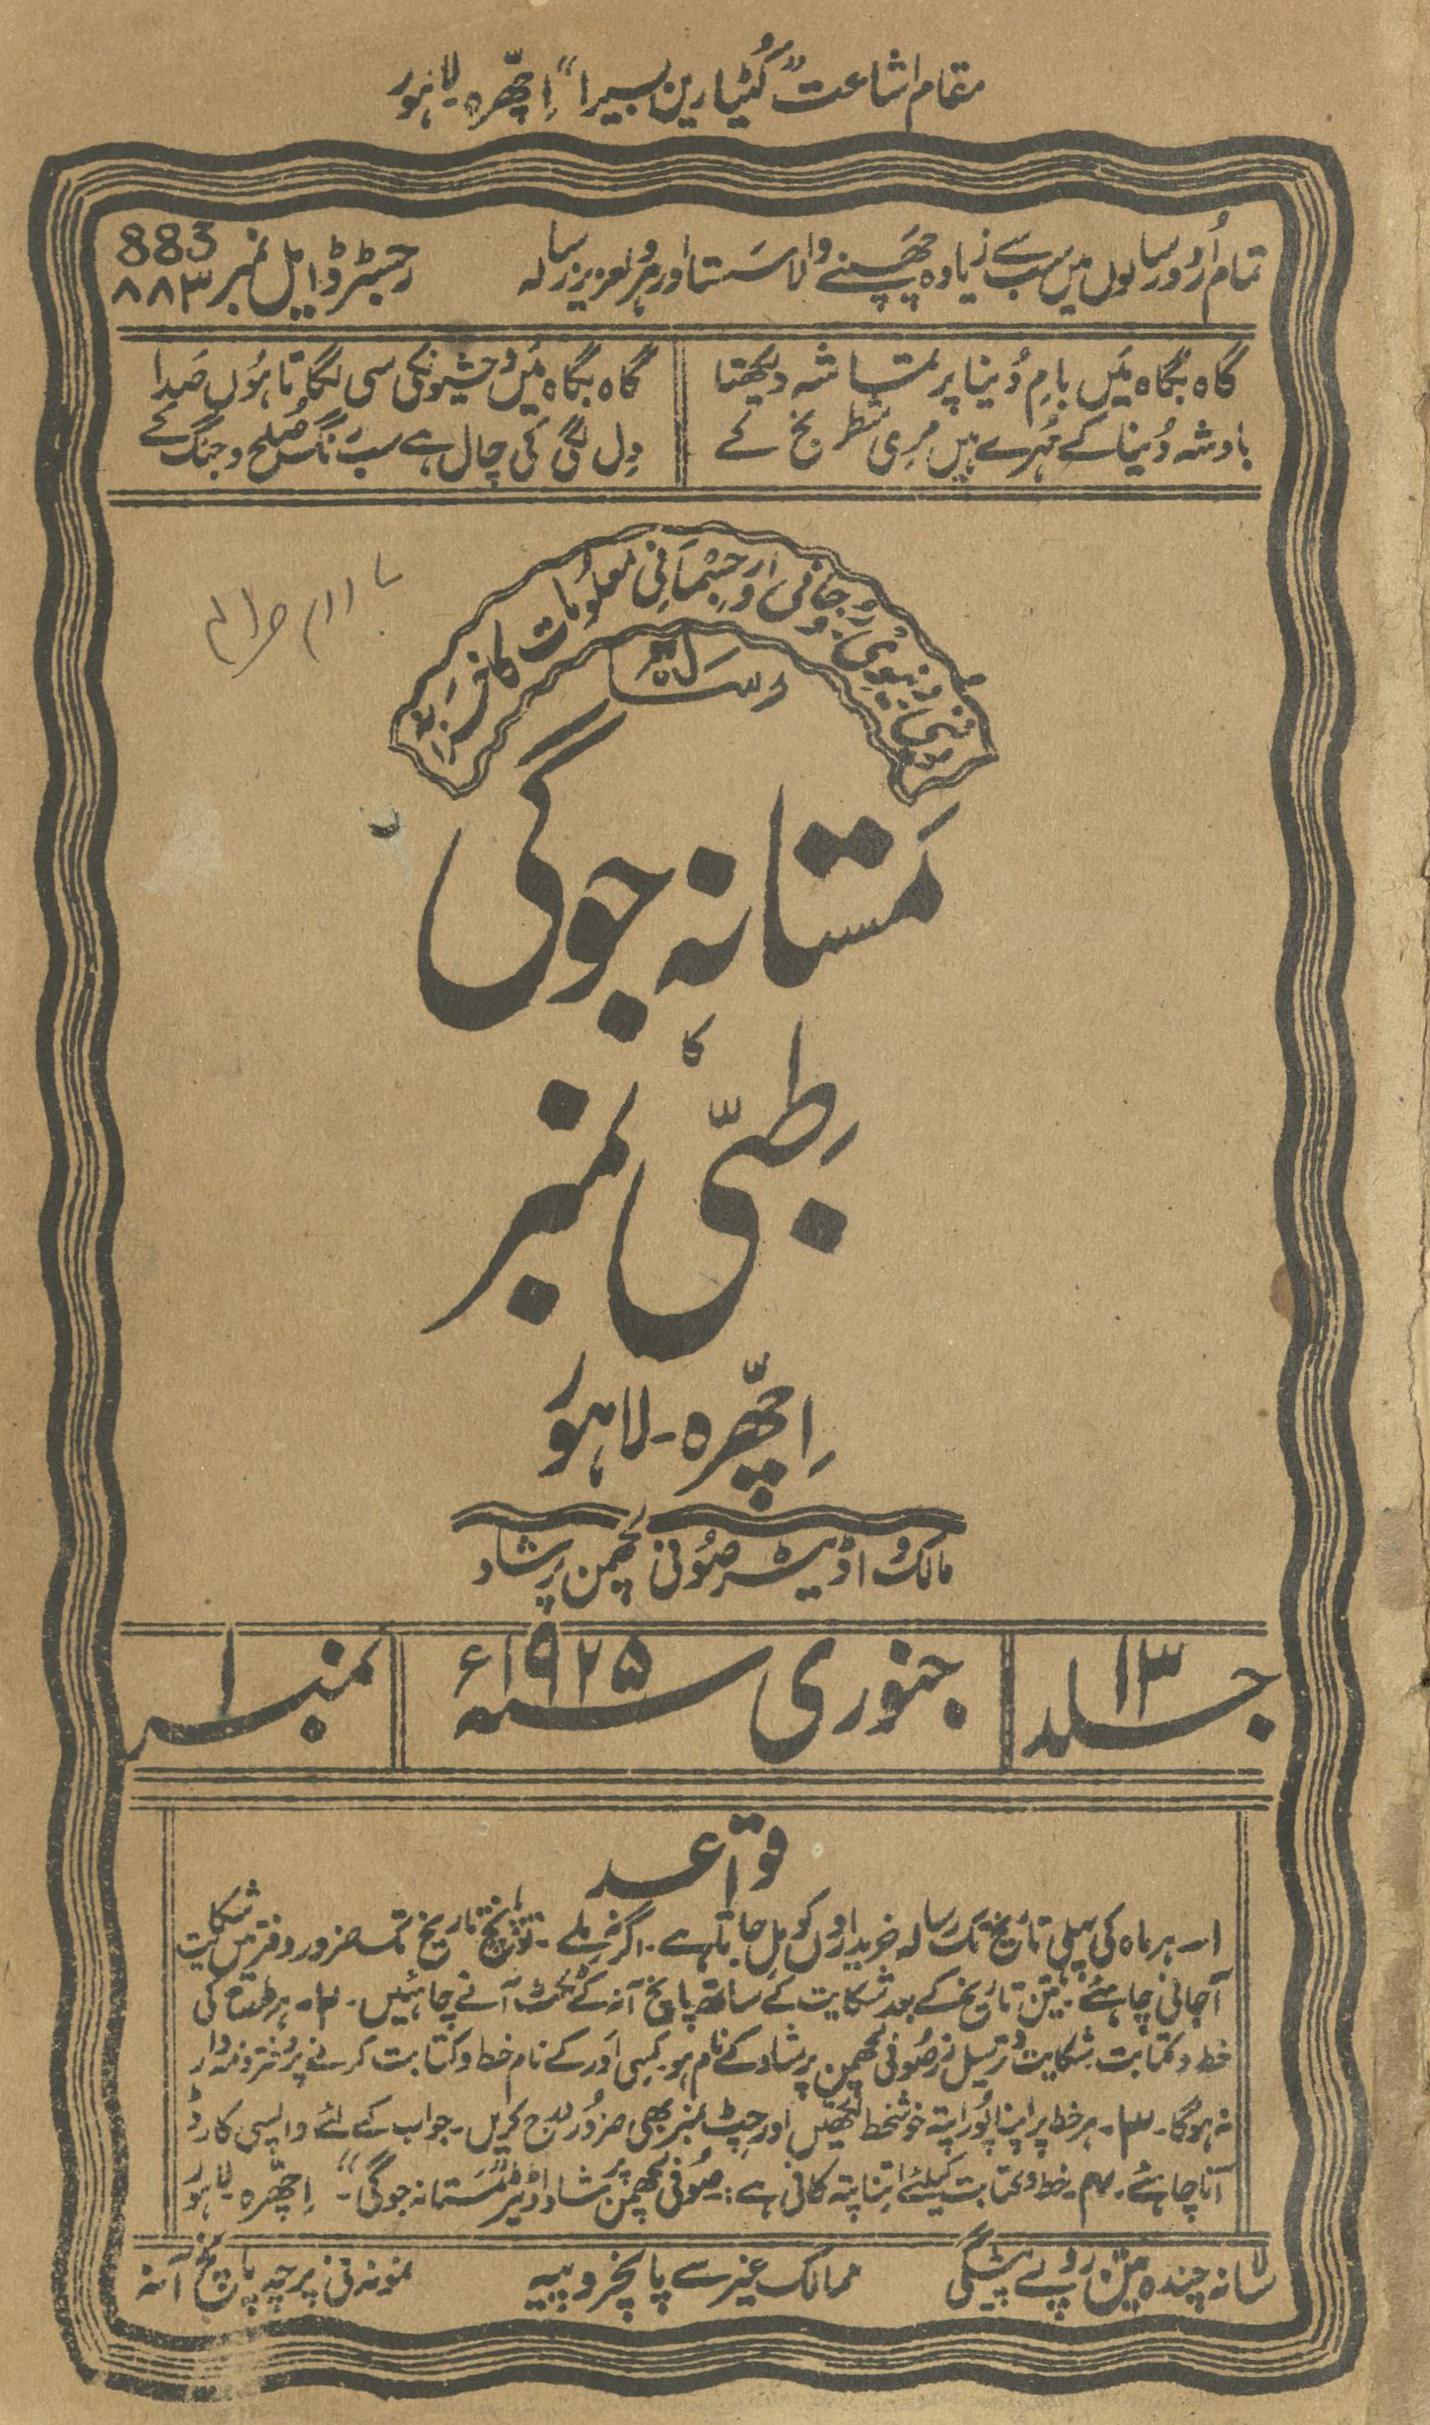 مقام اشاعت "کُٹیا رین بسیرا" اِچھّرہ لاہور
تمام اُردو رسالوں میں سب سے زیادہ چھپنے والا سستا اور ہر دلعزیز رسالہ
رجسٹرڈ ایل نمبر ۸۸۳ 883
گاہ بگاہ مَیں بامِ دُنیا پر تماشہ دیکھتا
گاہ بگاہ مَیں وحشیونکی سی لگاتا ہُوں صَدا
بادشہ دُنیا کے مُہرے ہیں مِری شطرنج کے
دِل لگی کی چال ہے سب رنگ صُلح و جنگ کے
دینی دنیوی رُوحانی اور جِسْمَانِی معلُومات کا خزانہ
رسالہ
مَستانہ جوگی
کا
طِبّی نمبر
اِچھّرہ - لاہور
مالک و اڈیٹر صُوفی لچھمن پرشاد
جلد ۱۳
جنوری سنہ ۱۹۲۵ء
نمبر ۱
قواعد
۱- ہر ماہ کی پہلی تاریخ تک رسالہ خریداروں کو مِل جاتا ہے - اگر نہ ملے - تو پانچ تاریخ تک ضرور دفتر میں شکایت
آجانی چاہئے - تین تاریخ کے بعد شکایت کے ساتھ پانچ آنہ کے ٹکٹ آنے چاہئیں - ۲- ہر طرح کی
خط و کتابت شکایت و ترسیل زر صُوفی لچھمن پرشاد کے نام ہو - کسی اَور کے نام خط و کتابت کرنے پر دفتر ذمہ وار
نہ ہوگا - ۳- ہر خط پر اپنا پُورا پتہ خوشخط لکھیں اور چِٹ نمبر بھی ضرُور درج کریں - جواب کے لئے واپسی کارڈ
آنا چاہئے - ۴- خط و کتابت کیلئے اِتنا پتہ کافی ہے : صُوفی لچھمن پرشاد اڈیٹر "مَستانہ جوگی" - اِچھّرہ - لاہور
سالانہ چندہ تین روپے پیشگی
ممالک غیر سے پانچروپیہ
نمونہ فی پرچہ پانچ آنہ